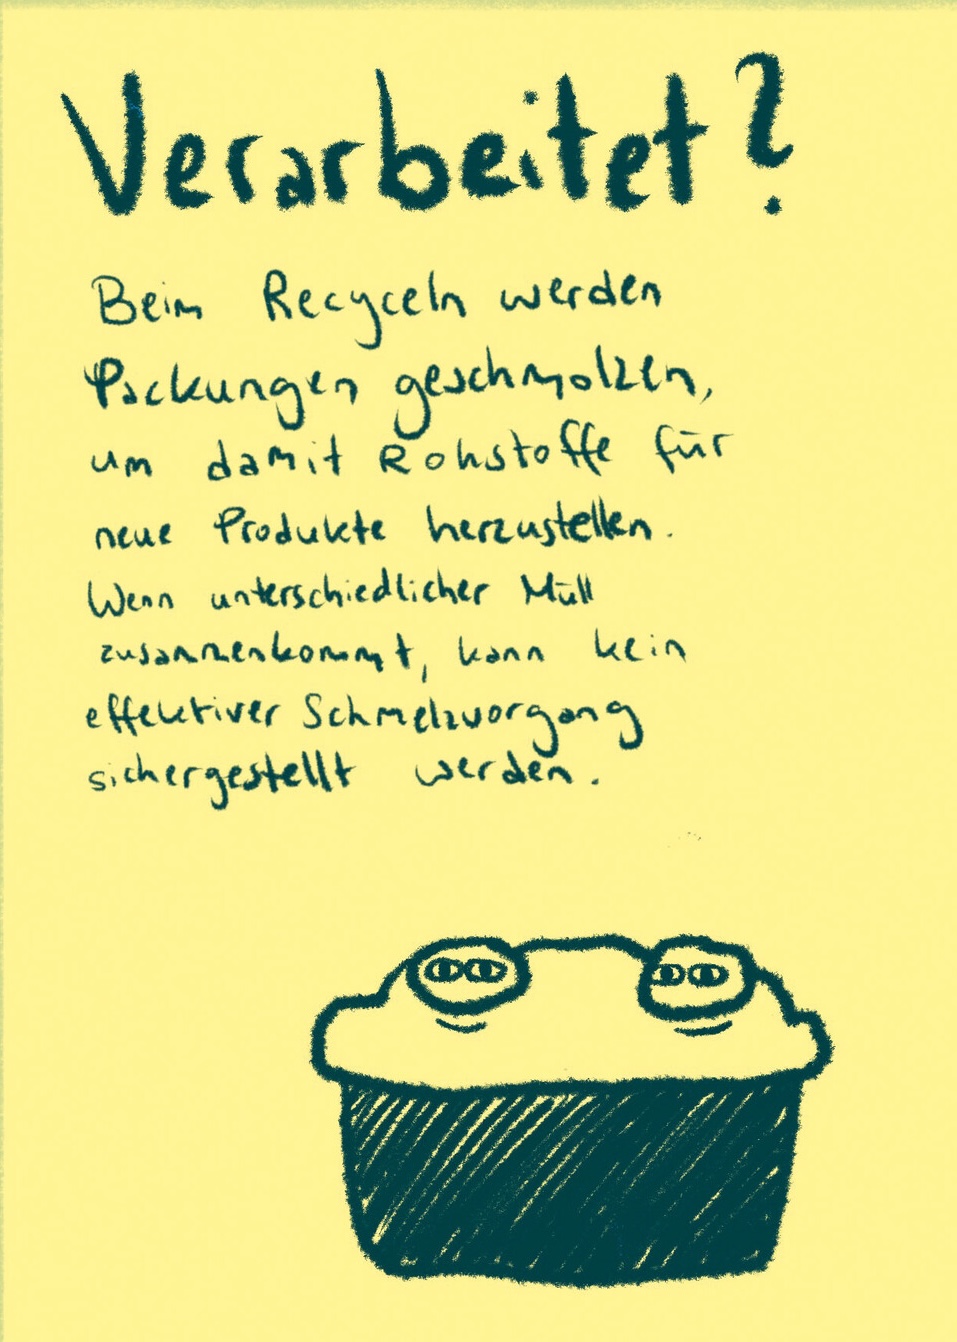 Verarbeitet?
Beim Recyceln werden
Packungen geschmolzen,
um damit Rohstoffe für
neue Produkte herzustellen.
Wenn unterschiedlicher Müll
zusammenkommt, kann kein
effektiver Schmelzvorgang
sichergestellt werden.